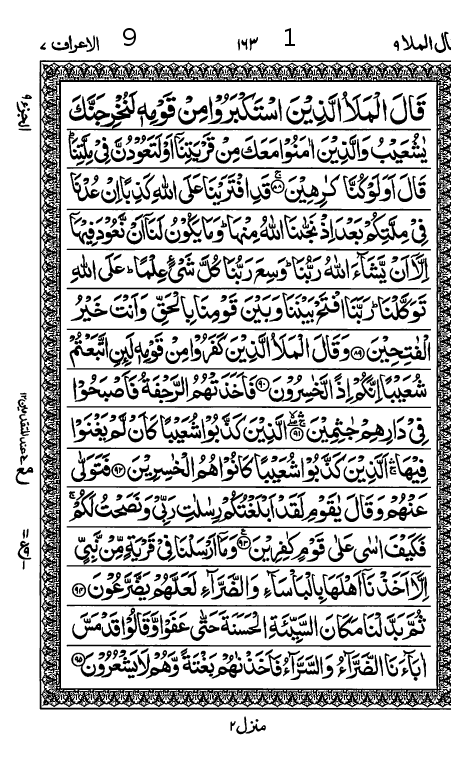 قال الملا ٩ ١٦٣ 1 9 الاعراف ٧
الجزء ٩
قَالَ الْمَلَاُ الَّذِيْنَ اسْتَكْبَرُوْا مِنْ قَوْمِهٖ لَنُخْرِجَنَّكَ
يٰشُعَيْبُ وَالَّذِيْنَ اٰمَنُوْا مَعَكَ مِنْ قَرْيَتِنَاۤ اَوْ لَتَعُوْدُنَّ فِيْ مِلَّتِنَاؕ
قَالَ اَوَلَوْ كُنَّا كٰرِهِيْنَ ۟ۚ۸۸ قَدِ افْتَرَيْنَا عَلَى اللّٰهِ كَذِبًا اِنْ عُدْنَا
فِيْ مِلَّتِكُمْ بَعْدَ اِذْ نَجّٰىنَا اللّٰهُ مِنْهَاؕ وَمَا يَكُوْنُ لَنَاۤ اَنْ نَّعُوْدَ فِيْهَاۤ
اِلَّاۤ اَنْ يَّشَآءَ اللّٰهُ رَبُّنَاؕ وَسِعَ رَبُّنَا كُلَّ شَيْءٍ عِلْمًاؕ عَلَى اللّٰهِ
تَوَكَّلْنَاؕ رَبَّنَا افْتَحْ بَيْنَنَا وَبَيْنَ قَوْمِنَا بِالْحَقِّ وَاَنْتَ خَيْرُ
الْفٰتِحِيْنَ ۸۹ وَقَالَ الْمَلَاُ الَّذِيْنَ كَفَرُوْا مِنْ قَوْمِهٖ لَىِٕنِ اتَّبَعْتُمْ
شُعَيْبًا اِنَّكُمْ اِذًا لَّخٰسِرُوْنَ ۹۰ فَاَخَذَتْهُمُ الرَّجْفَةُ فَاَصْبَحُوْا
فِيْ دَارِهِمْ جٰثِمِيْنَ ۹۱ الَّذِيْنَ كَذَّبُوْا شُعَيْبًا كَاَنْ لَّمْ يَغْنَوْا
فِيْهَا ۚ اَلَّذِيْنَ كَذَّبُوْا شُعَيْبًا كَانُوْا هُمُ الْخٰسِرِيْنَ ۹۲ فَتَوَلّٰى
عَنْهُمْ وَقَالَ يٰقَوْمِ لَقَدْ اَبْلَغْتُكُمْ رِسٰلٰتِ رَبِّيْ وَنَصَحْتُ لَكُمْ ۚ
فَكَيْفَ اٰسٰى عَلٰى قَوْمٍ كٰفِرِيْنَ ۹۳ وَمَاۤ اَرْسَلْنَا فِيْ قَرْيَةٍ مِّنْ نَّبِيٍّ
اِلَّاۤ اَخَذْنَاۤ اَهْلَهَا بِالْبَاْسَآءِ وَالضَّرَّآءِ لَعَلَّهُمْ يَضَّرَّعُوْنَ ۹۴
ثُمَّ بَدَّلْنَا مَكَانَ السَّيِّئَةِ الْحَسَنَةَ حَتّٰى عَفَوْا وَّقَالُوْا قَدْ مَسَّ
اٰبَآءَنَا الضَّرَّآءُ وَالسَّرَّآءُ فَاَخَذْنٰهُمْ بَغْتَةً وَّهُمْ لَا يَشْعُرُوْنَ ۹۵
منزل ٢